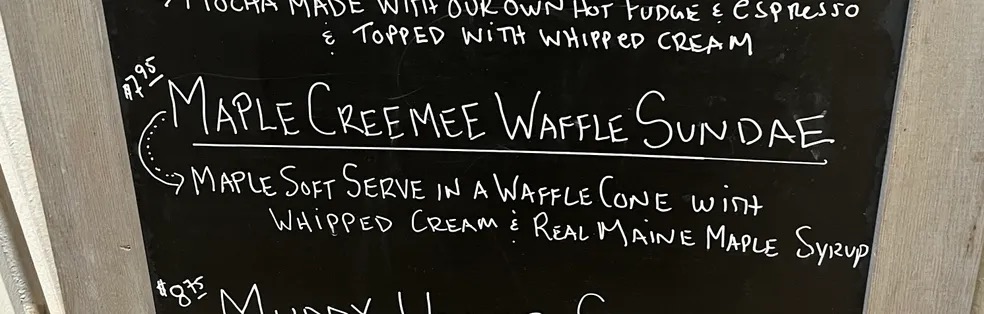 MOCHA MADE WITH OUR OWN HOT FUDGE & ESPRESSO
& TOPPED WITH WHIPPED CREAM
$7.95
MAPLE CREEMEE WAFFLE SUNDAE
MAPLE SOFT SERVE IN A WAFFLE CONE WITH
WHIPPED CREAM & REAL MAINE MAPLE SYRUP
$8.75
MUDDY